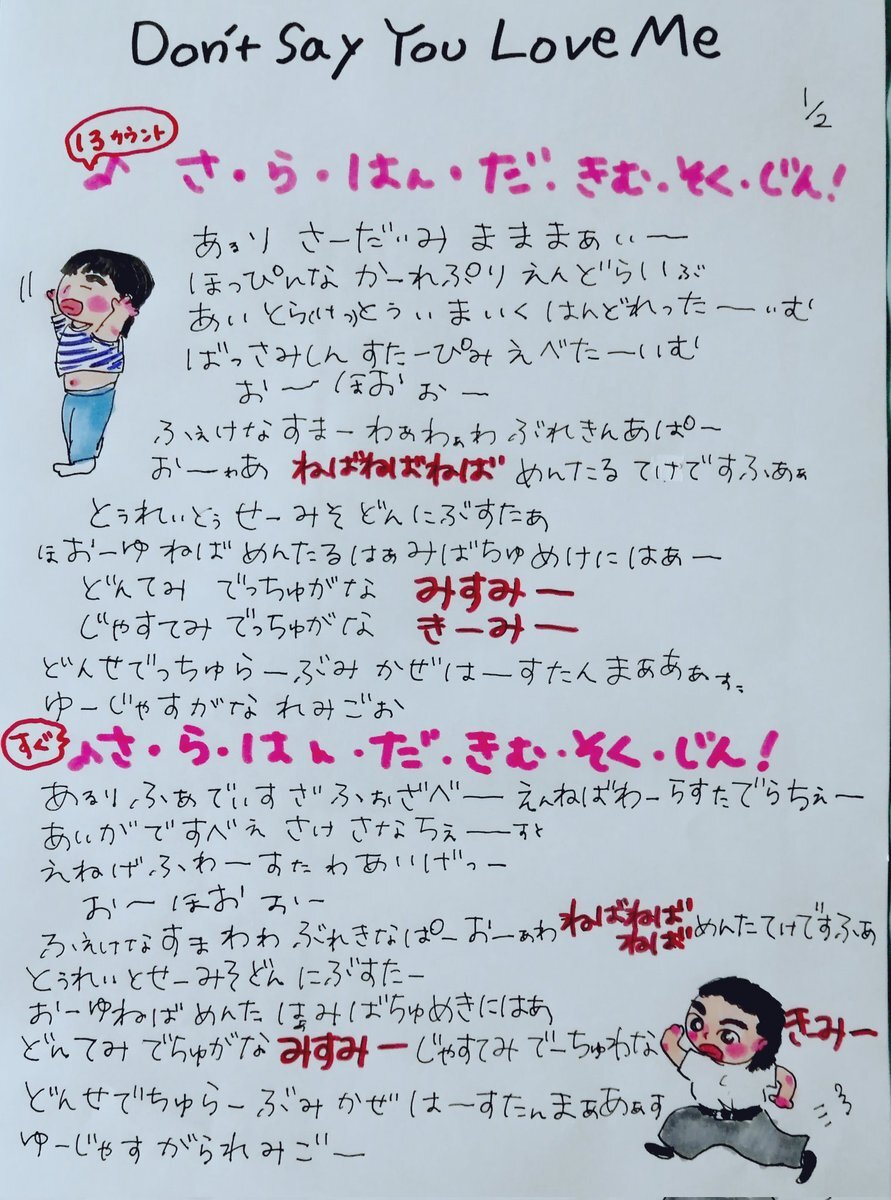 Don't Say You Love Me
1/2
13カウント
♪ さ・ら・はん・だ・きむ・そく・じん!
あるり さーだぃみ まままぁぃー
ほっぴんな かーれぷり えんどらいぶ
あい とら(けっ)とぅ ぃ まいく はんどれった ーぃむ
ばっさみしん すたーぴみ えべたーいむ
お〜 ほお ぉー
ふぇけな すまー わぁわぁわ ぶれきんあぱー
おーゎあ ねばねばねば めんたる てけですふぁぁ
とぅれぃとぅ せーみそ どんにぶすたぁ
ほおーゆ ねば めんたるはぁみばちゅめけにはぁー
どんてみ でっちゅがな みすみー
じゃすてみ でっちゅがな きーみー
どんせでっちゅ らーぶみ かぜ はーすたん まぁあぁす
ゆーじゃすがな れみごぉ
すぐ
♪さ・ら・はん・だ・きむ・そく・じん!
あるり ふぁでぃす ざ ふぉざべー えんねばわー らすたでらちぇー
あいがですべぇ さけ さなちぇーすと
えねげ ふわーすた わあいげっー
お〜 ほお ぉー
ふえけなすま わわ ぶれきなぱー おーぁわ ねばねばねば めんたてけですふぁ
とぅれいとせーみそどん にぶすたー
おーゆねば めんた はぁみばちゅめきにはぁ
どんてみ でちゅがな みすみー じゃすてみ でーちゅわな きみー
どんせでちゅらーぶみ かぜ はーすたんまぁあぁす
ゆーじゃす がられみごー